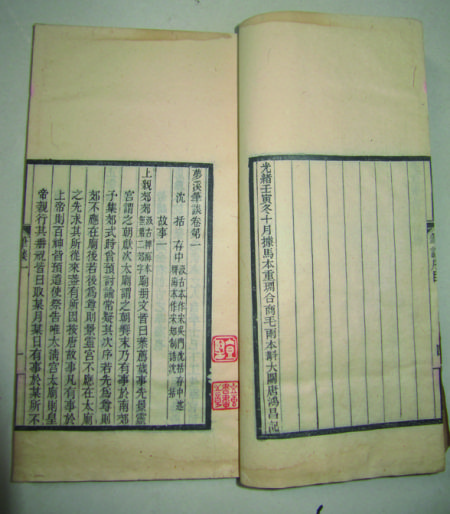 光緒壬寅冬十月據馬本重琱合商毛兩本斠大關唐鴻昌記
夢溪筆談卷第一
沈括存中
故事一
上親郊郊廟冊文皆曰恭薦歲事先景靈
宮謂之朝獻次太廟謂之朝饗末乃有事於南郊
予集郊式時曾預討論常疑其次序若先為尊則
郊不應在廟後若後為尊則景靈宮不應在太廟
之先求其所從來蓋有所因按唐故事凡有事於
上帝則百神皆預遣使祭告唯太清宮太廟則皇
帝親行其冊祝皆曰取某月某日有事於某所不